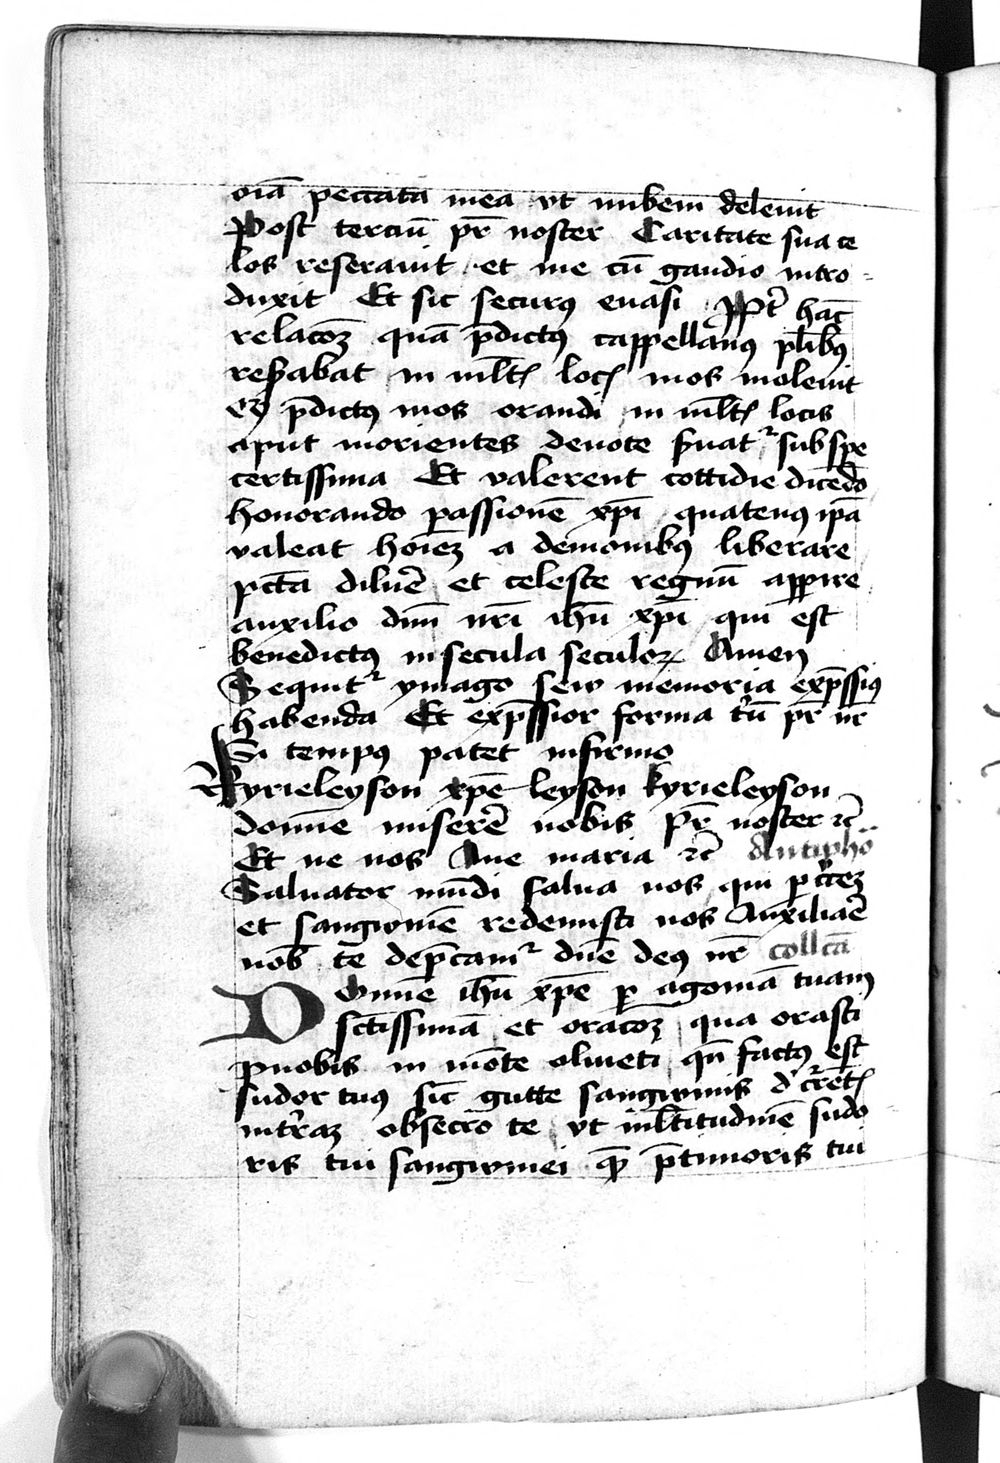 oīa peccata mea vt nubem deleuit
Post terciū pr̄ noster Caritate sua ce
los reserauit et me cū gaudio intro
duxit Et sic securꝰ euasi Ppt̓ hāc
relacōꝫ quā p̄dictꝰ cappellanꝰ pl̄ibꝰ
refꝫabat in ml̄tꝭ locꝭ mos inoleuit
eꝫ p̄dictꝰ mos orandi in ml̄tꝭ locis
aput morientes deuote ẜuatᷣ sub spe
certissima Et valerent cottidie dicēdo
honorando passionē xp̄i quatenꝰ ip̄a
valeat hoīeꝫ a demonibꝰ liberare
pctā diluē et celeste regnū apperire
auxilio dn̄i nr̄i ihū xp̄i qui est
benedictꝰ in secula seculoꝝ Amen
Sequitᷣ ymago sew memoria exp̄ssiꝰ
habenda Et exp̄ssior forma t̓ū pr̄ nr̄
Si tempꝰ patet infirmo
Kyrieleyson xp̄e leyson kyrieleyson
domīe miserē nobis pr̄ noster ꝛc̄
Et ne nos Aue maria ꝛc̄ Antiphō
Saluator mūdi salua nos qui ꝑ crēꝫ
et sangwinē redemisti nos Auxiliaē
nob̄ te dep̄camᷣ dn̄e deꝰ nr̄ collcā
Domīe ihū xp̄e ꝑ agoniā tuam
sctīssimā et oracōꝫ qua orasti
ꝓ nobis in mōte oliueti qn̄ factꝰ est
sudor tuꝰ sic̄ gutte sangwinis d̓cr̄rētꝭ
in tr̄aꝫ obsecro te vt ml̄titudinē sudo
ris tui sangwinei q̄ꝫ p̄ timoris tui